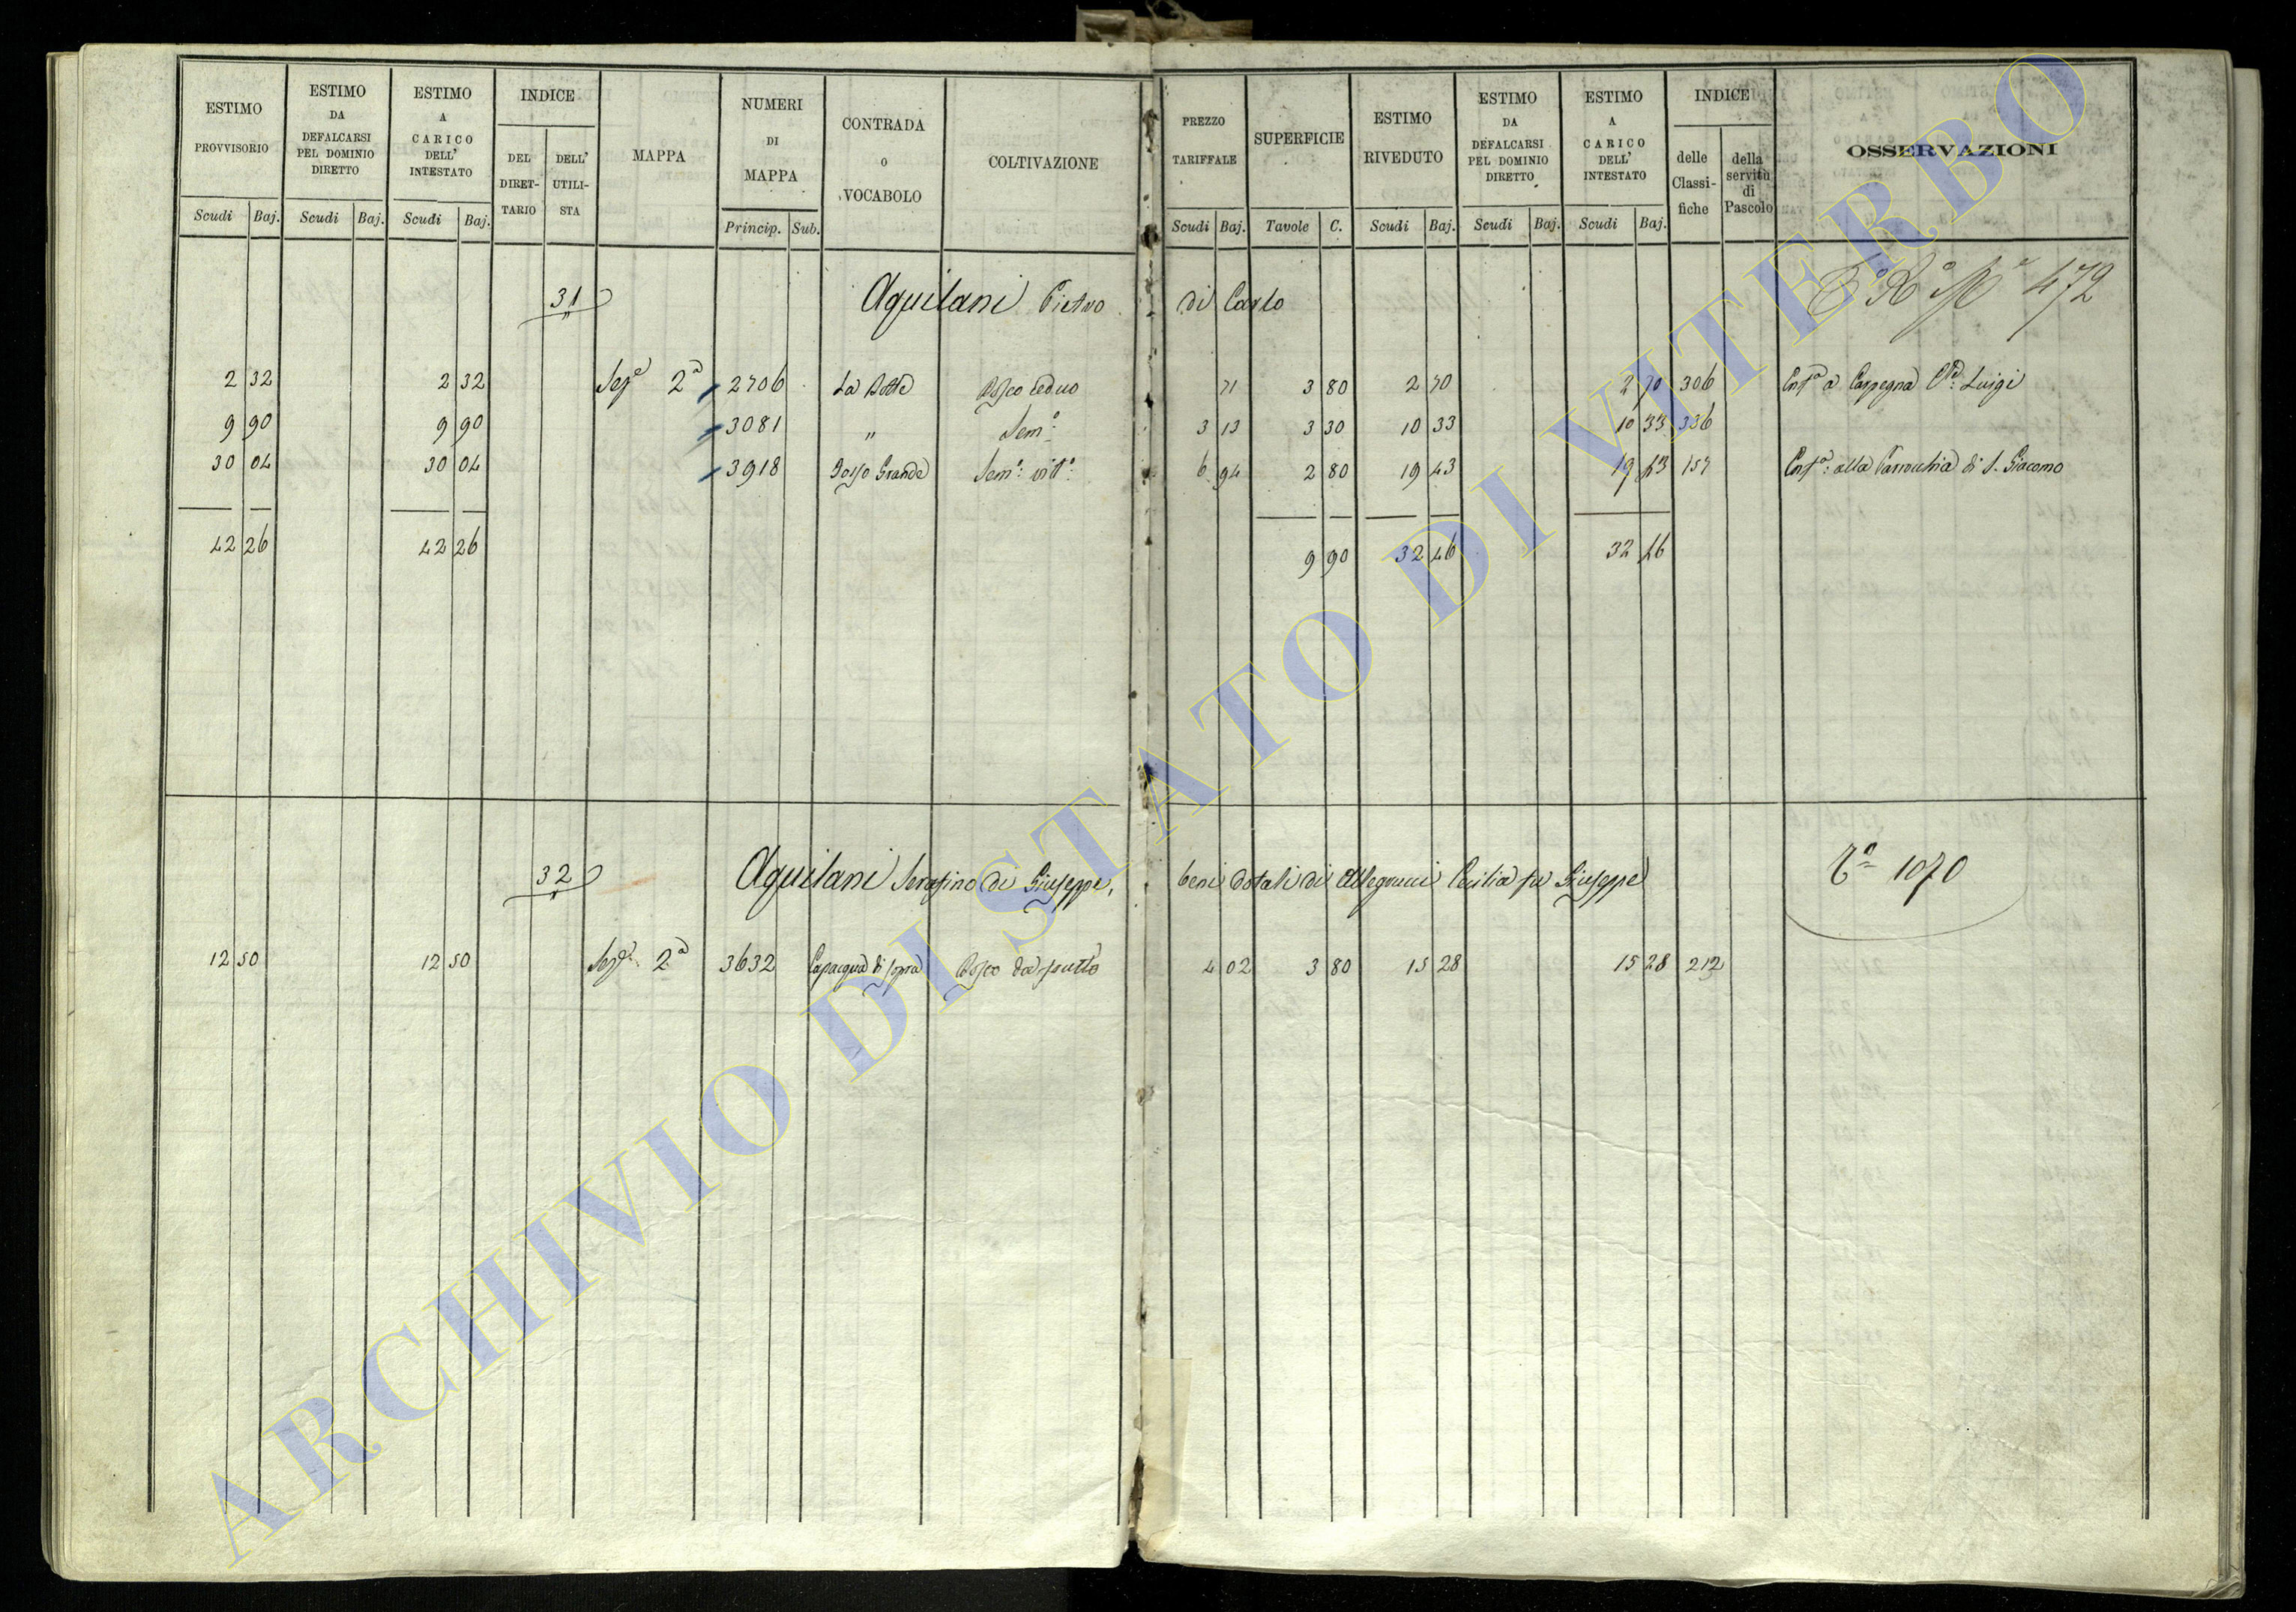 ESTIMO PROVVISORIO
Scudi Baj.
ESTIMO DA DEFALCARSI PEL DOMINIO DIRETTO
Scudi Baj.
ESTIMO A CARICO DELL' INTESTATO
Scudi Baj.
INDICE
DEL DIRET-TARIO
DELL' UTILI-STA
MAPPA
NUMERI DI MAPPA
Princip. Sub.
CONTRADA O VOCABOLO
COLTIVAZIONE
PREZZO TARIFFALE
Scudi Baj.
SUPERFICIE
Tavole C.
ESTIMO RIVEDUTO
Scudi Baj.
ESTIMO DA DEFALCARSI PEL DOMINIO DIRETTO
Scudi Baj.
ESTIMO A CARICO DELL' INTESTATO
Scudi Baj.
INDICE
delle Classi-fiche
della servitù di Pascolo
OSSERVAZIONI
31 Aquilani Pietro di Carlo 472
2 32 2 32 Sez.e 2a 2706 La Botte Bosco ceduo 71 3 80 2 70 2 70 306 Enf.a a Carpegna Luigi
9 90 9 90 3081 " Sem.o 3 13 3 30 10 33 10 33 336
30 04 30 04 3918 Fosso Grande Sem.o vit.o 6 94 2 80 19 43 19 43 157 Enf.a: alla Parrochia di S. Giacomo
42 26 42 26 9 90 32 46 32 46
32 Aquilani Serafino di Giuseppe, beni dotali di Allegrucci Cecilia fu Giuseppe 1070
12 50 12 50 Sez.e 2a 3632 Capacqua di sopra Bosco da frutto 4 02 3 80 15 28 15 28 212
ARCHIVIO DI STATO DI VITERBO